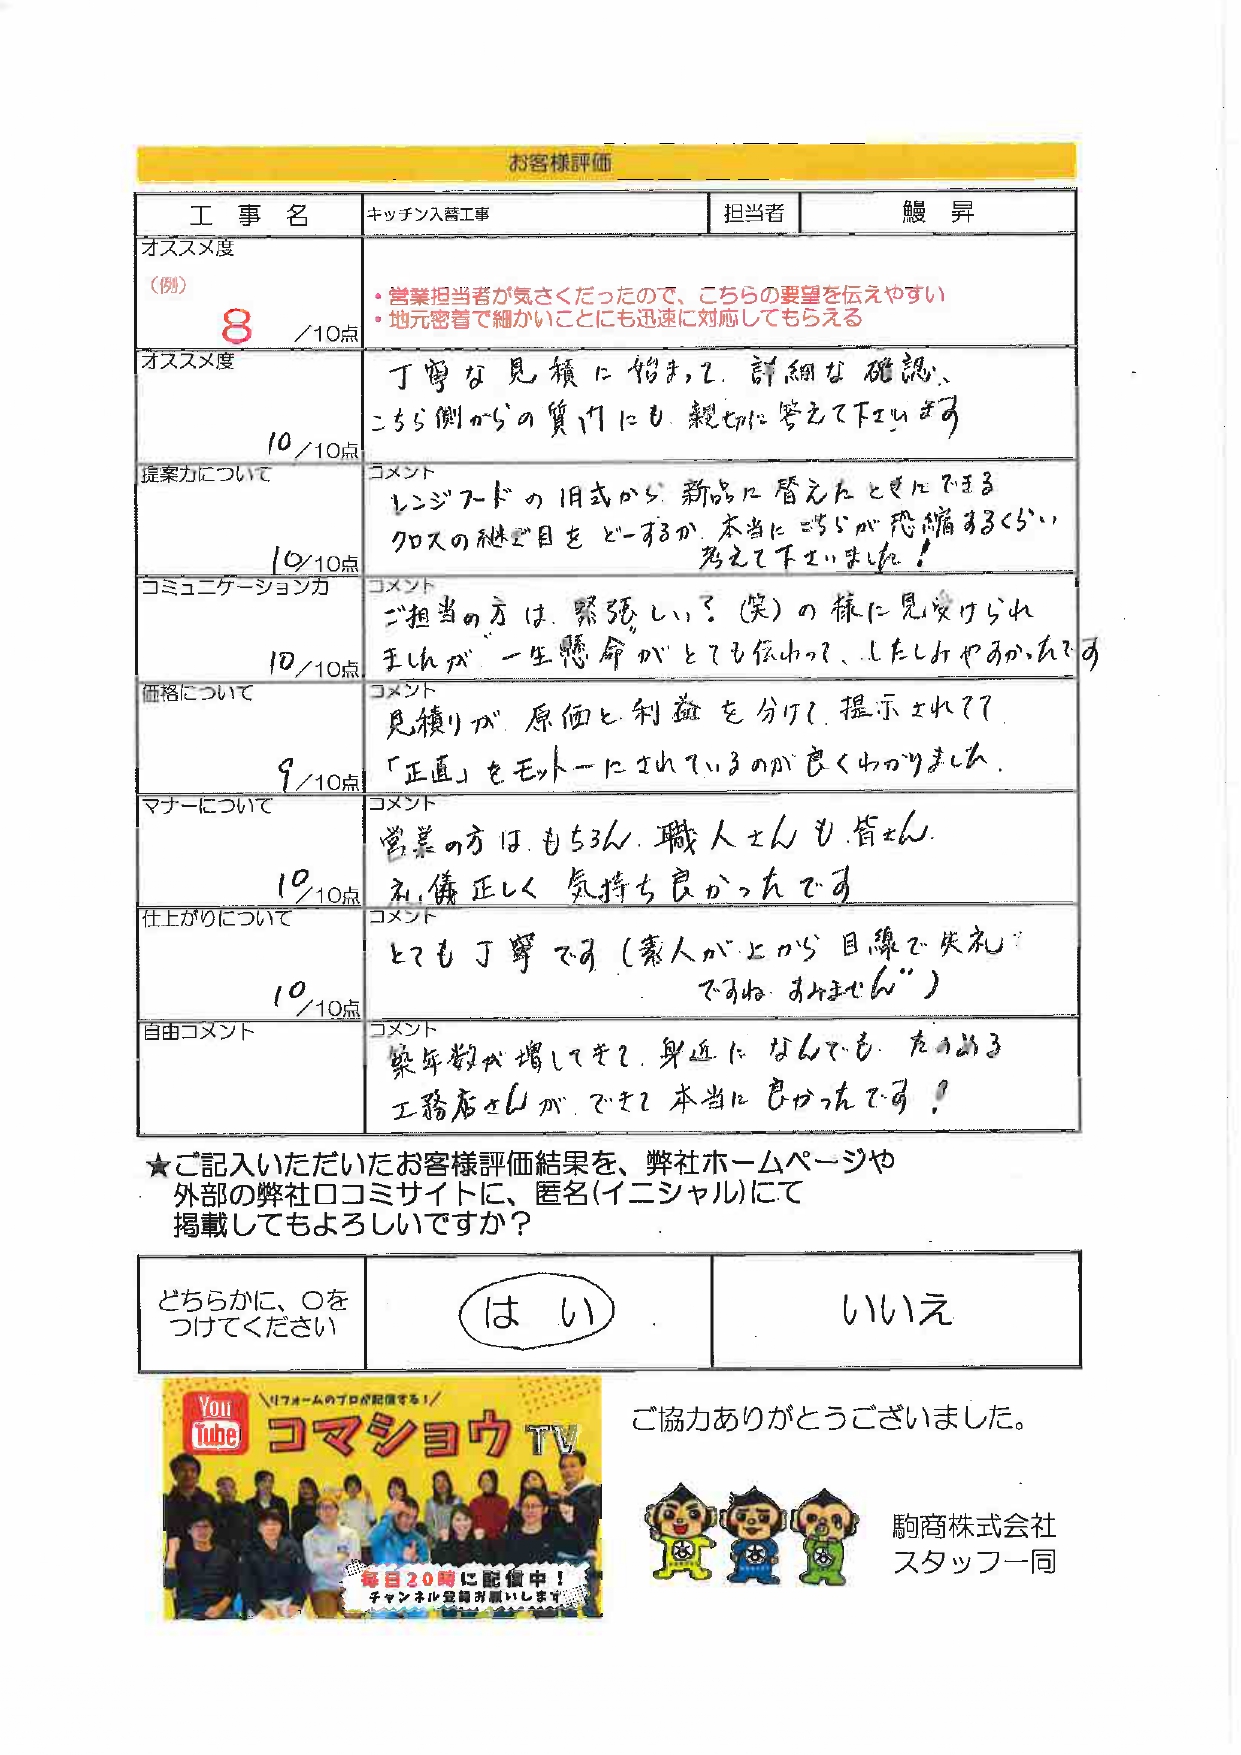 お客様評価
工 事 名 キッチン入替工事 担当者 鰻 昇
オススメ度
（例）
8 /10点
・営業担当者が気さくだったので、こちらの要望を伝えやすい
・地元密着で細かいことにも迅速に対応してもらえる
オススメ度
10/10点
丁寧な見積に始まって、詳細な確認、
こちら側からの質問にも親切に答えて下さいます
提案力について
10/10点
コメント
レンジフードの旧式から新品に替えたときにできる
クロスの継ぎ目をどーするか、本当にこちらが恐縮するくらい
考えて下さいました！
コミュニケーション力
10/10点
コメント
ご担当の方は、緊張しい？(笑)の様に見受けられ
ましたが〝一生懸命〟がとても伝わって、したしみやすかったです
価格について
9/10点
コメント
見積りが原価と利益を分けて提示されてて
「正直」をモットーにされているのが良くわかりました.
マナーについて
10/10点
コメント
営業の方はもちろん、職人さんも皆さん
礼儀正しく気持ち良かったです
仕上がりについて
10/10点
コメント
とても丁寧です(素人が上から目線で失礼
ですね すみません〃)
自由コメント
コメント
築年数が増してきて、身近になんでもたのめる
工務店さんができて本当に良かったです！
★ご記入いただいたお客様評価結果を、弊社ホームページや
外部の弊社口コミサイトに、匿名(イニシャル)にて
掲載してもよろしいですか？
どちらかに、〇を
つけてください
は い
いいえ
You
Tube
\リフォームのプロが配信する！/
コマショウTV
毎日20時に配信中！
チャンネル登録お願いします
ご協力ありがとうございました。
駒商株式会社
スタッフ一同